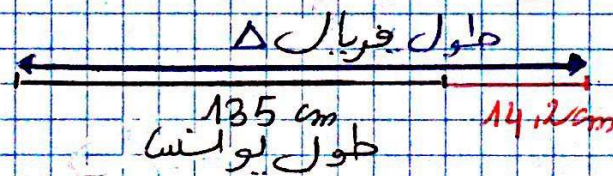 طول فريال Δ
135 cm 14,2 cm
طول يونس